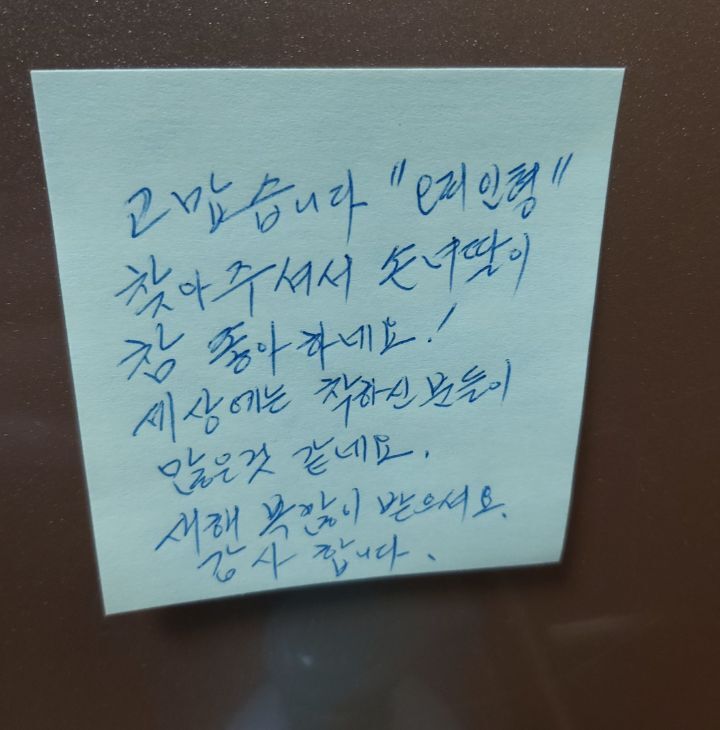 고맙습니다 "애피인형"
찾아주셔서 손녀딸이
참 좋아하네요!
세상에는 착하신 분들이
많은것 같네요.
새해 복많이 받으셔요.
감사 합니다.